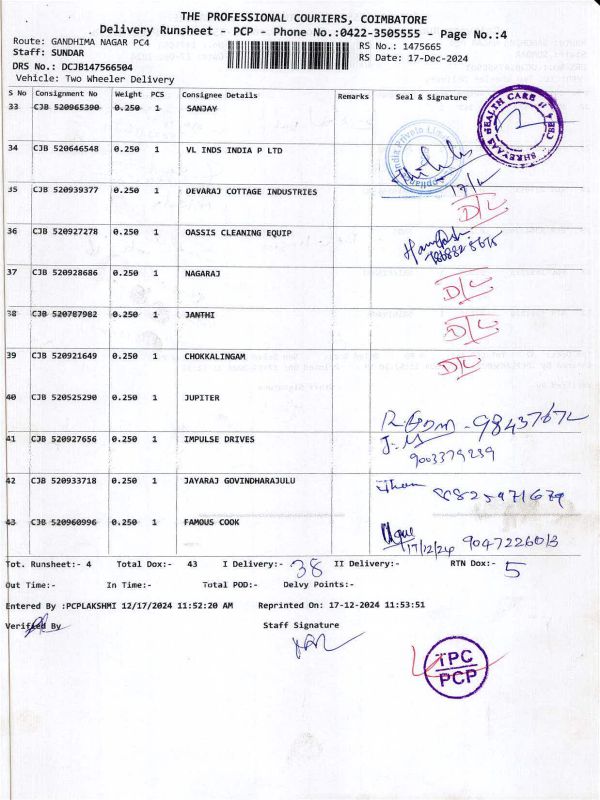 THE PROFESSIONAL COURIERS, COIMBATORE
Delivery Runsheet - PCP - Phone No.:0422-3505555 - Page No.:4
Route: GANDHIMA NAGAR PC4 RS No.: 1475665
Staff: SUNDAR RS Date: 17-Dec-2024
DRS No.: DCJB147566504
Vehicle: Two Wheeler Delivery
S No Consignment No Weight PCS Consignee Details Remarks Seal & Signature
33 CJB 520965390 0.250 1 SANJAY
SHREYAAS HEALTH CARE CBE
34 CJB 520646548 0.250 1 VL INDS INDIA P LTD
35 CJB 520939377 0.250 1 DEVARAJ COTTAGE INDUSTRIES D/L
36 CJB 520927278 0.250 1 OASSIS CLEANING EQUIP
37 CJB 520928686 0.250 1 NAGARAJ D/L
38 CJB 520787982 0.250 1 JANTHI D/L
39 CJB 520921649 0.250 1 CHOKKALINGAM D/L
40 CJB 520525290 0.250 1 JUPITER
41 CJB 520927656 0.250 1 IMPULSE DRIVES
42 CJB 520933718 0.250 1 JAYARAJ GOVINDHARAJULU
43 CJB 520960996 0.250 1 FAMOUS COOK 17/12/24 9047226013
Tot. Runsheet:- 4 Total Dox:- 43 I Delivery:- 38 II Delivery:- RTN Dox:- 5
Out Time:- In Time:- Total POD:- Delvy Points:-
Entered By :PCPLAKSHMI 12/17/2024 11:52:20 AM Reprinted On: 17-12-2024 11:53:51
Verified By Staff Signature
TPC
PCP